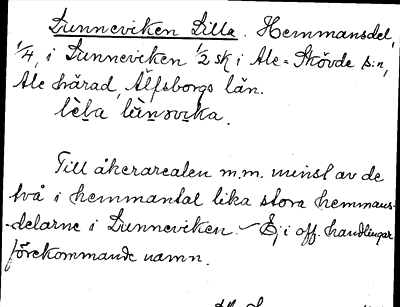 Dunneviken Lilla. Hemmansdel,
1/4, i Dunneviken 1/2 sk i Ale-Skövde s:n,
Ale härad, Älfsborgs län.
Till åkerarealen m.m. minst av de
två i hemmantal lika stora hemmans-
-delarne i Dunneviken. - Ej i off. handlingar
förekommande namn.